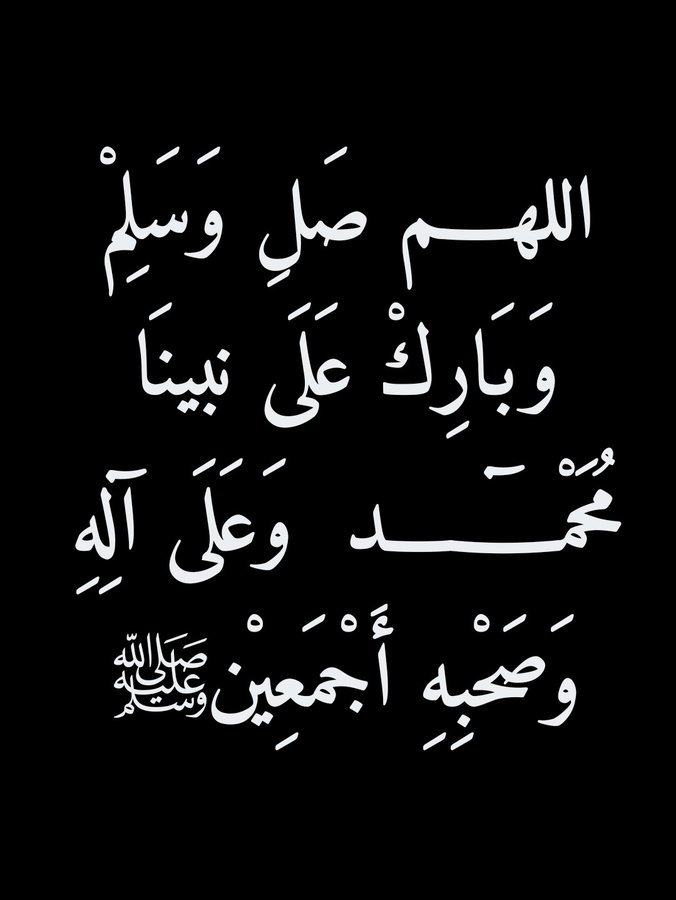 اللهم صَلِ وَسَلِمْ
وَبَارِكْ عَلَى نبينَا
مُحَمْـــــد وَعَلَى آلِهِ
وَصَحْبِهِ أَجْمَعِيْن ﷺ